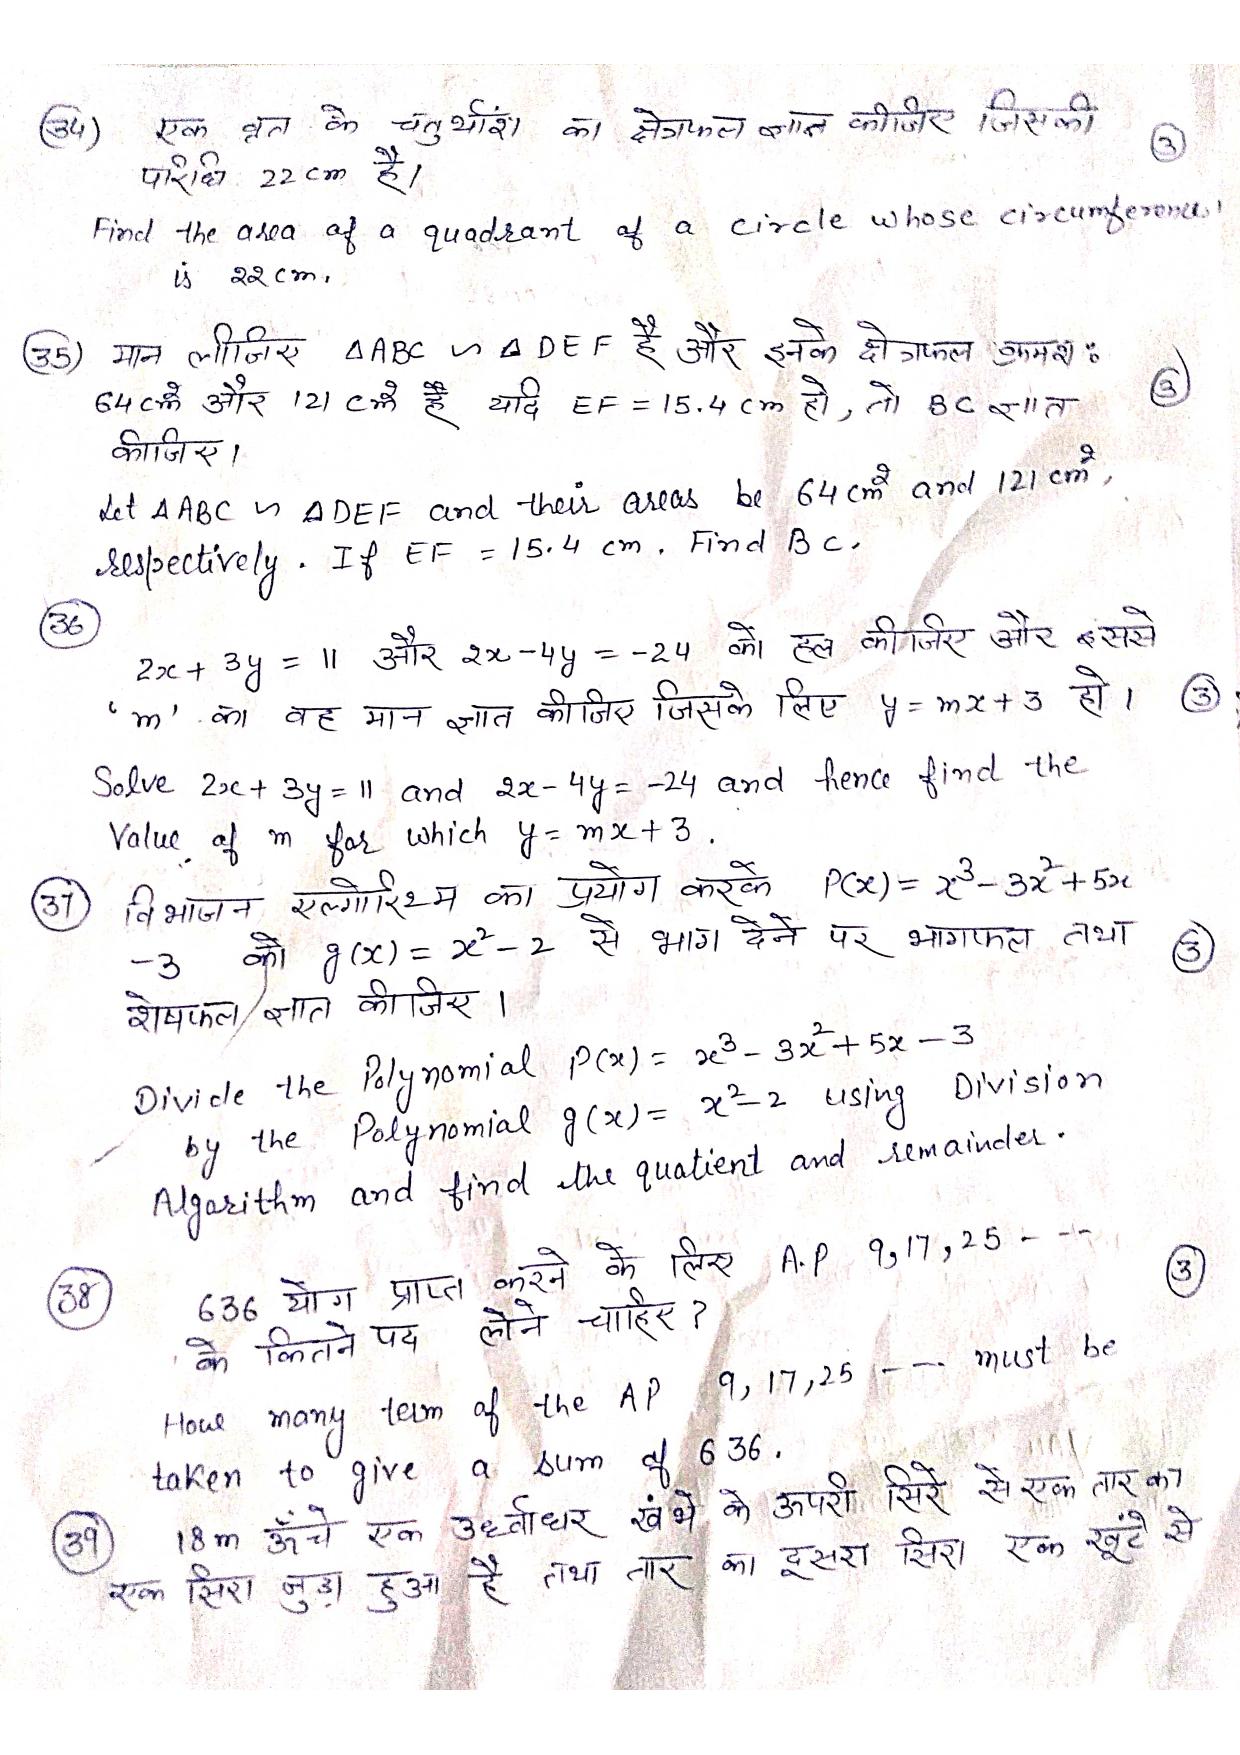 34) एक वृत के चतुर्थांश का क्षेत्रफल ज्ञात कीजिए जिसकी
परिधि 22 cm है। (3)
Find the area of a quadrant of a circle whose circumference
is 22 cm.
35) मान लीजिए ΔABC ∽ ΔDEF है और इनके क्षेत्रफल क्रमशः
64 cm² और 121 cm² है यदि EF = 15.4 cm हो, तो BC ज्ञात (3)
कीजिए।
Let ΔABC ∽ ΔDEF and their areas be 64 cm² and 121 cm²,
respectively. If EF = 15.4 cm. Find BC.
36
2x + 3y = 11 और 2x - 4y = -24 को हल कीजिए और इससे
'm' का वह मान ज्ञात कीजिए जिसके लिए y = mx + 3 हो। (3)
Solve 2x + 3y = 11 and 2x - 4y = -24 and hence find the
Value of m for which y = mx + 3.
37) विभाजन एल्गोरिथ्म का प्रयोग करके P(x) = x³ - 3x² + 5x
-3 को g(x) = x² - 2 से भाग देने पर भागफल तथा (3)
शेषफल ज्ञात कीजिए।
Divide the Polynomial P(x) = x³ - 3x² + 5x - 3
by the Polynomial g(x) = x² - 2 using Division
Algorithm and find the quatient and remainder.
38) 636 योग प्राप्त करने के लिए A.P 9, 17, 25 - -- (3)
के कितने पद लेने चाहिए?
How many term of the AP 9, 17, 25 ---- must be
taken to give a sum of 636.
39) 18m ऊँचे एक उर्ध्वाधर खंभे के ऊपरी सिरे से एक तार का
एक सिरा जुड़ा हुआ है तथा तार का दूसरा सिरा एक खूंटे से